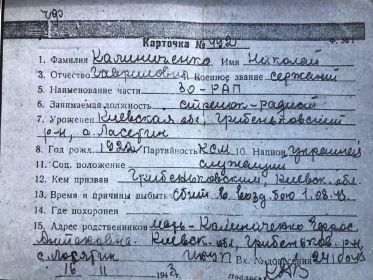 Карточка № 492
1. Фамилия Калиниченко Имя Николай
3. Отчество Гаврилович Военное звание сержант
5. Наименование части 30-РАП
6. Занимаемая должность стрелок-радист
7. Уроженец Киевская обл, Гребенковский
р-н, с. Лосятин
8. Год рожд. 1922 Партийность КСМ 10. Национ. украинец
11. Соц. положение служащий
12. Кем призван Гребенковским, Киевск. обл.
13. Время и причины выбыт. Сбит в возд. бою 1.08.43.
14. Где похоронен
15. Адрес родственников мать - Калиниченко
Антоновна. Киевск. обл, Гребеньков. р-н,
с. Лосятин Вх. № донесения
16 11 1943 г.